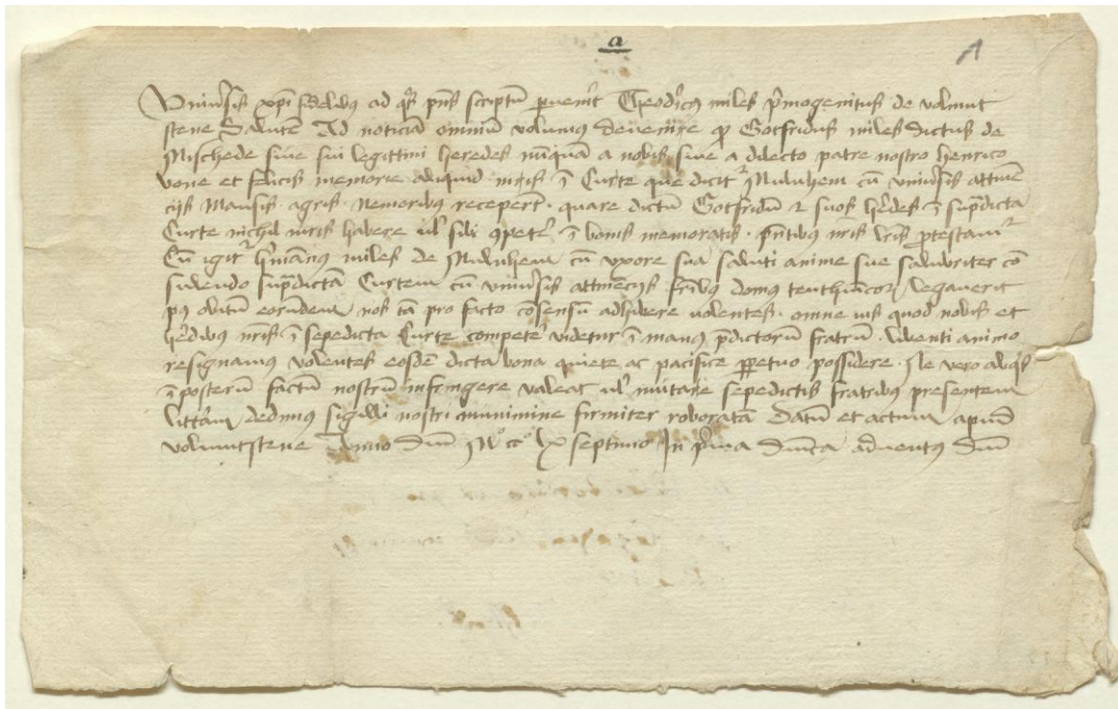 a
1
Uniu'sis xp̄i fidelib9 ad q̊s p̄ns scriptū p̲uen'it Theod'ic9 miles p'mogenitus de volmut
stene Salutē Ad noticiā omniū volumus deuenire qd Gotfridus miles dictus de
Mischede siue sui legittimi heredes nūquā a nobis siue a dilecto patre nostro henrico
bone et felicis memorie aliquid iuris ī Curte que dicit' Muluhem cū vniu'sis attinē
cijs Mansis · agris · Nemoribus recepert̄ · quare dictū Gotfridū et suos h'edes ī sup̄dicta
Curte nichil iuris habere ul' sibi 9pet'e ī bonis memoratis · p̄ntibus nr̄is lr̄is p̲testam'
Cū igit' h'mānus miles de Muluhem cū vxore sua saluti anime sue salubriter cō
sulendo sup̄dictā Curtem cū vniu'sis attinēcijs fr̄ibus domus legauerit
p9 obitū eorundem nos tā pro facto cōsensū adhibere volentes · omne ius quod nobis et
h'edibus nr̄is ī sepedicta Curte compet'e videtur ī manus p̄dictorū fratrū · libenti animo
resignamus volentes eosdē dicta bona quiete ac pacifice p̲petuo possidere · Ne vero aliq's
ī posterū factū nostrū infringere valeat ul' mutare sepedictis fratribus presentem
litt'am dedimus sigilli nostri munimine firmiter roboratā Datū et actum apud
volmutstene Anno dnī Mº ccº lx septimo In p'ma dnīca aduentus dnī